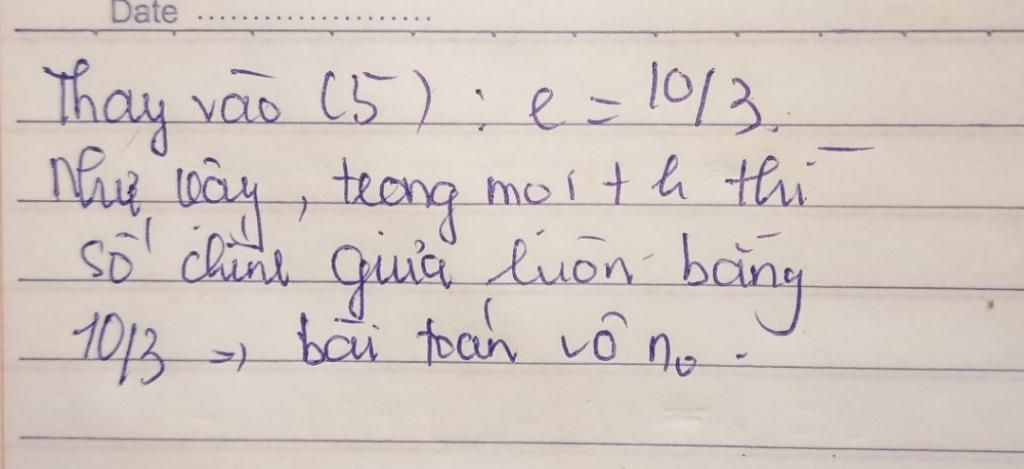 Date ......................
Thay vào (5) : e = 10/3.
Như vậy, trong mọi t h thì
số chính giữa luôn bằng
10/3 => bài toán vô no.